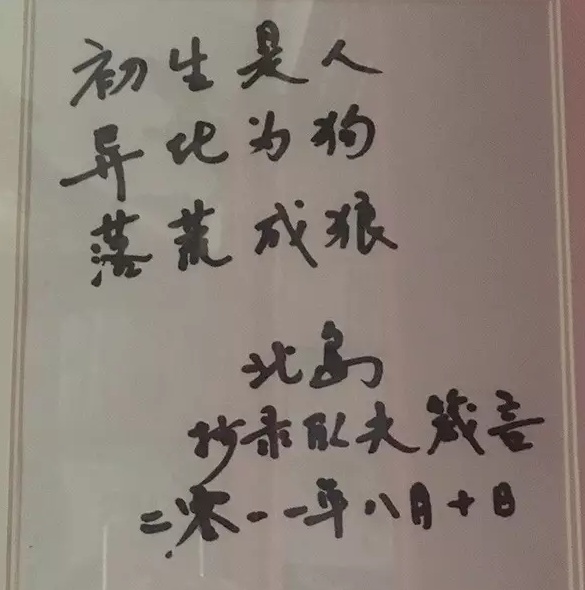 初生是人
异化为狗
落荒成狼
北岛
抄录卧夫箴言
二零一一年八月十日